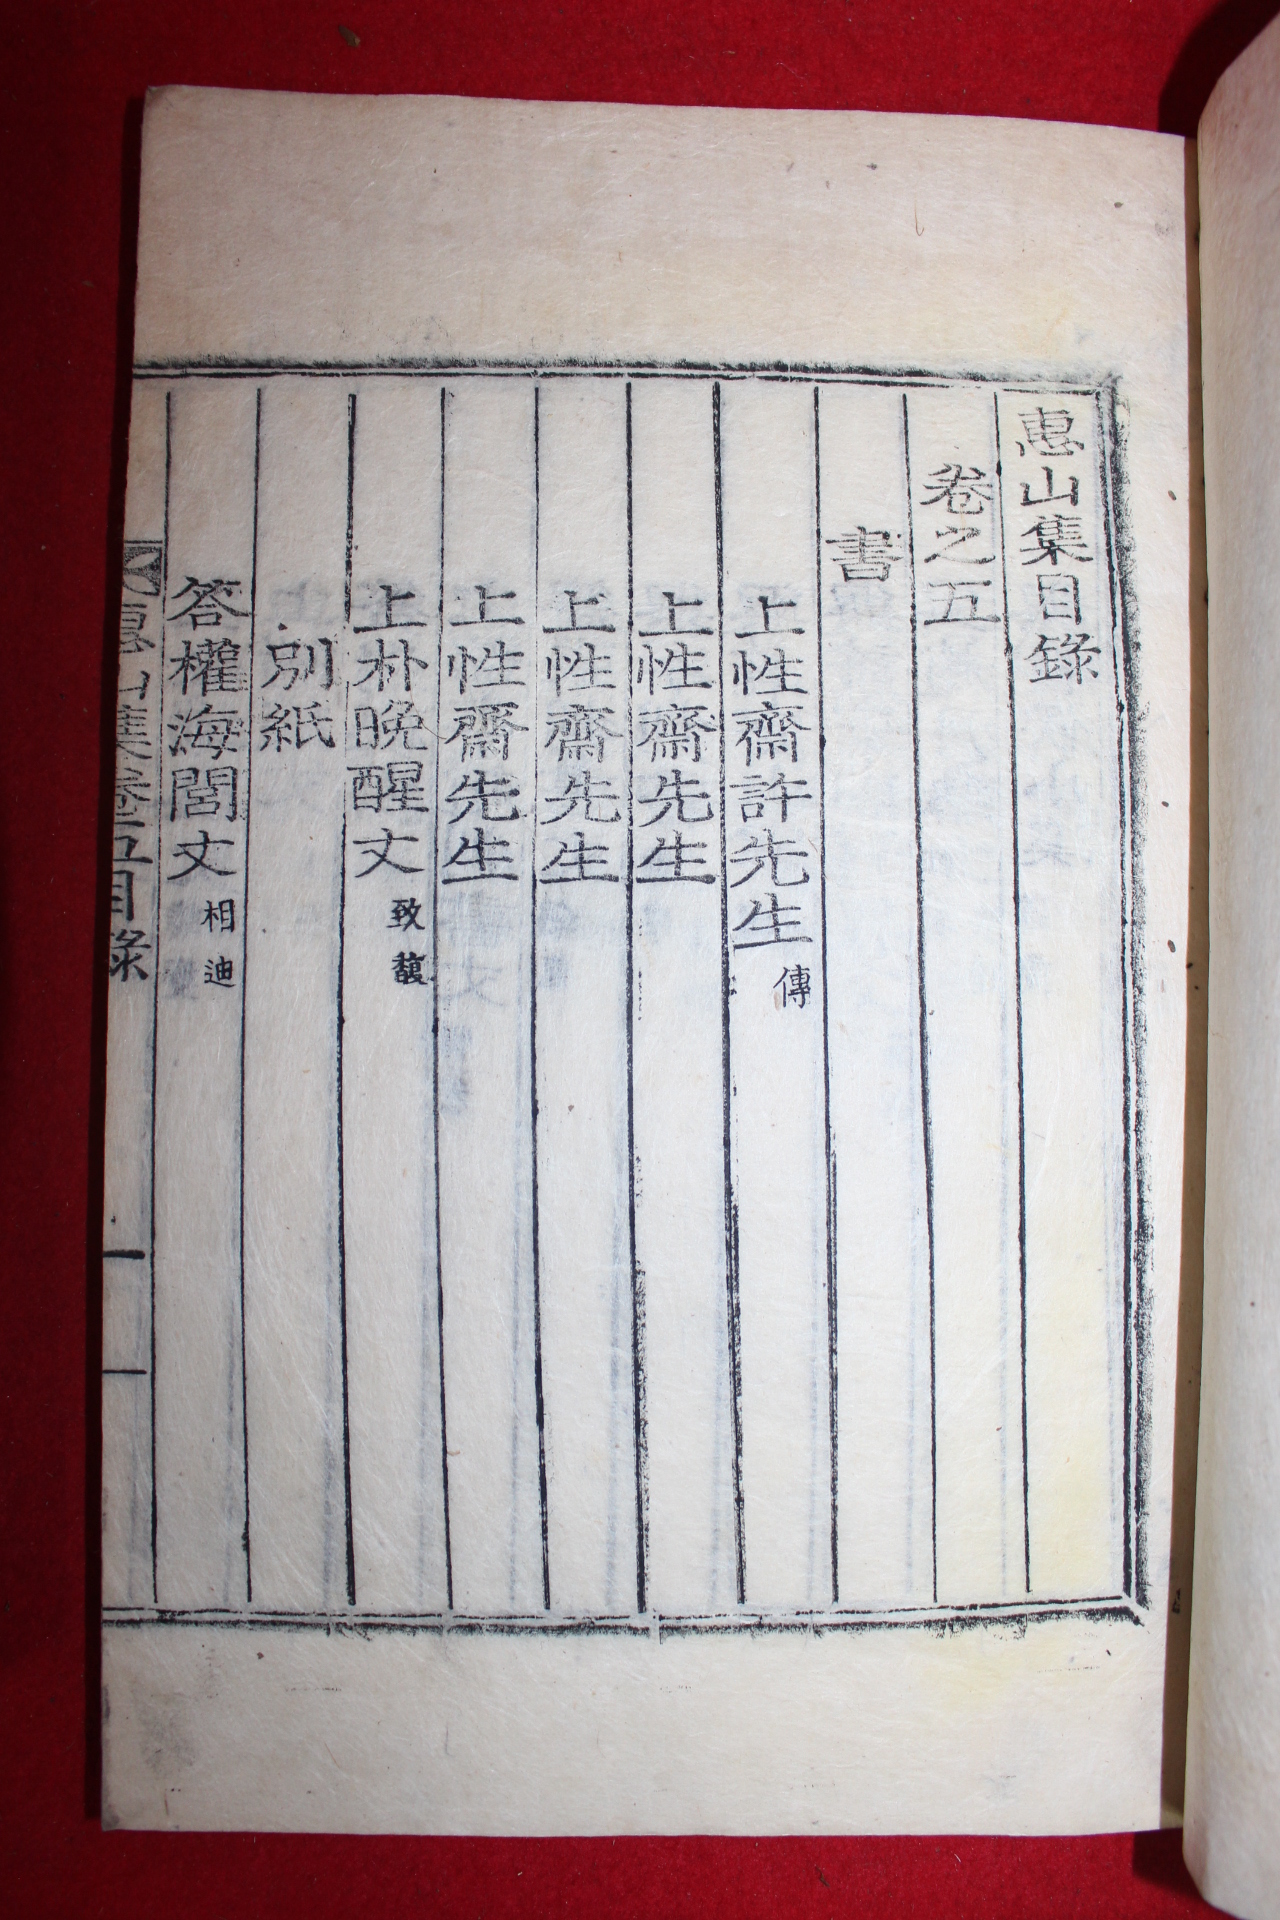 惠山集目錄
卷之五
書
上性齋許先生 傳
上性齋先生
上性齋先生
上性齋先生
上朴晩醒丈 致馥
別紙
答權海閭丈 相迪
惠山集卷五目錄 一